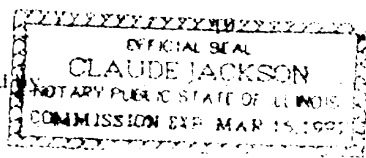 OFFICIAL SEAL
CLAUDE JACKSON
NOTARY PUBLIC STATE OF ILLINOIS
COMMISSION EXP. MAR 15,